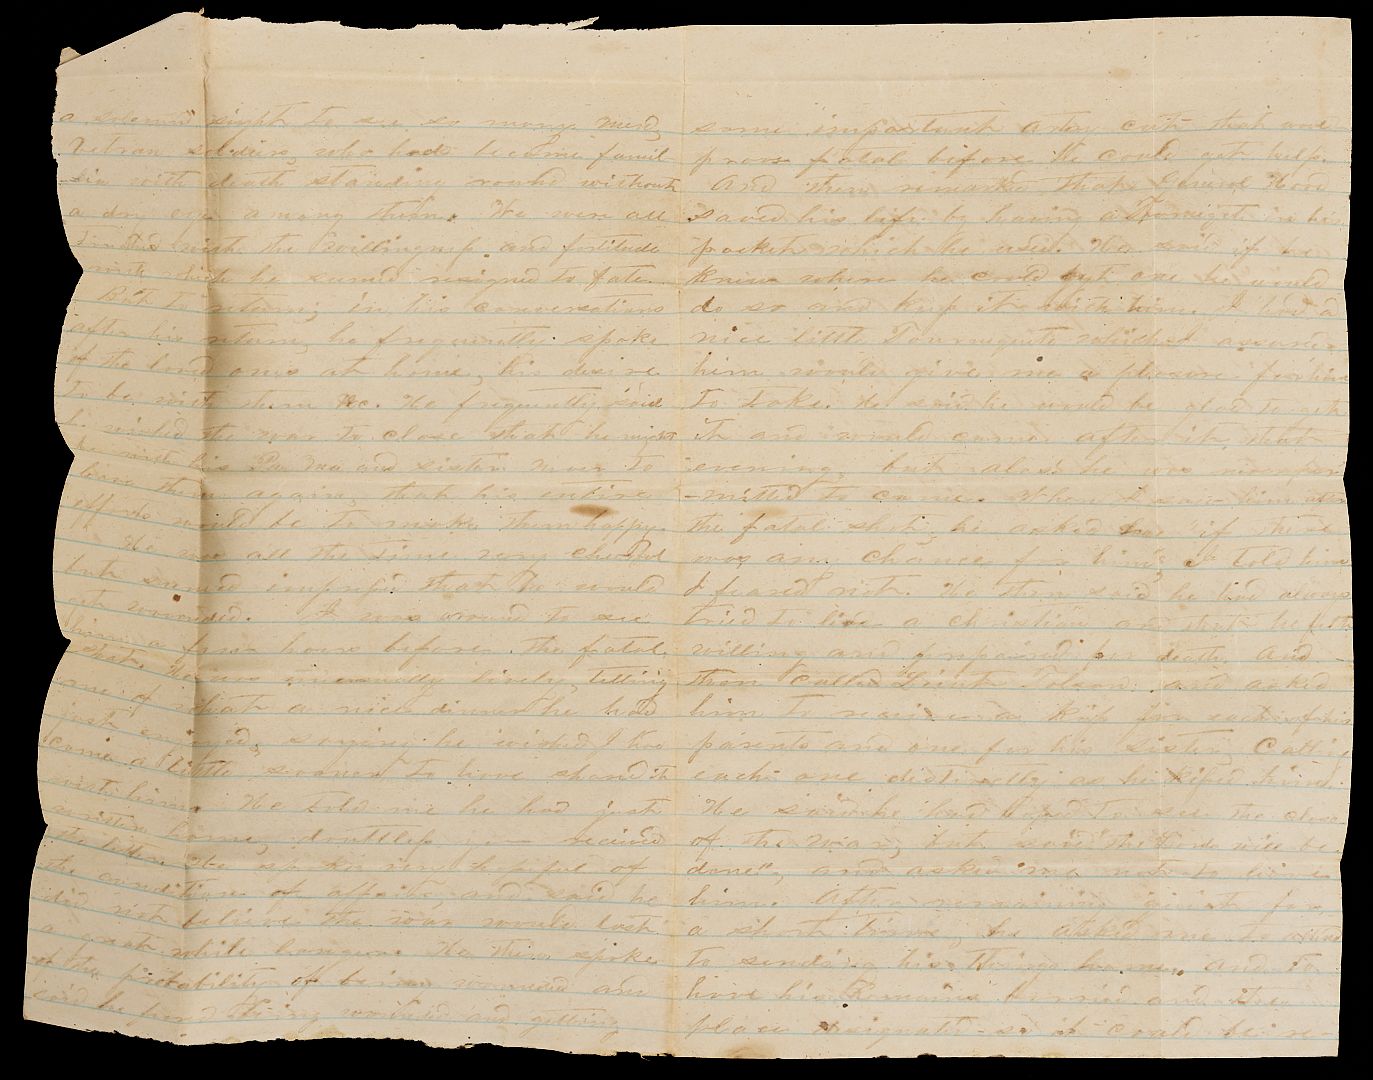 a solemn sight to see so many men,
Vetran soldiers, who had become famil
-iar with death standing round without
a dry eye among them. We were all
with the willingness and fortitude
with which he seemed resigned to fate.
But to return, in his conversations
after his return, he frequently spoke
of the loved ones at home, his desire
to be with them &c. He frequently said
he wished the war to close that he might
be with his Pa Ma and sister never to
leave them again, that his entire
efforts would be to make them happy.
He was all the time very cheerful
but seemed impressed that he would
get wounded. I was around to see
him a few hours before the fatal
shot. He was unusually lively, telling
me of what a nice dinner he had
just enjoyed, saying he wished I had
come a little sooner to have shared it
with him. He told me he had just
written home, doubtless you received
the letter. He spoke very hopeful of
the condition of affairs, and said he
did not believe the war would last
a great while longer. He then spoke
of the probability of being wounded and
said he feard being wounded and getting
some important artery cut that would
prove fatal before he could get help.
And then remarked that General Hood
saved his life by having a Torniquet in his
pocket which he used. He said if he
knew where he could get one he would
do so and keep it with him. I had a
nice little Tourniquete which I assured
him would give me a pleasure for him
to take. He said he would be glad to get
it and would come after it that
evening, but alas! he was
-mitted to come. When I saw him after
the fatal shot, he asked me "if there
was any chance for him", I told him
I feared not. He then said he had always
tried to live a christian and that he felt
willing and prepaired for death. And
then called Lieut and asked
him to receive a kiss for each of his
parents and one for his sister, Calling
each one distinctly as he kissed him.
He said he had hoped to see the close
of the War, but said "the Lords will be
done", and asked me not to leave
him. After remaining quiet for
a short time, he asked me to attend
to sending his things home, and to
have his Remains burried and the
place designated so it could be re-